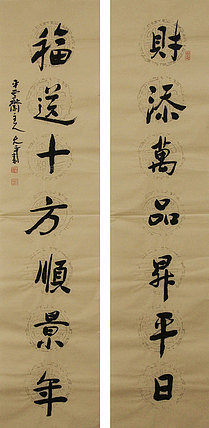 財添萬品昇平日
福送十方順景年